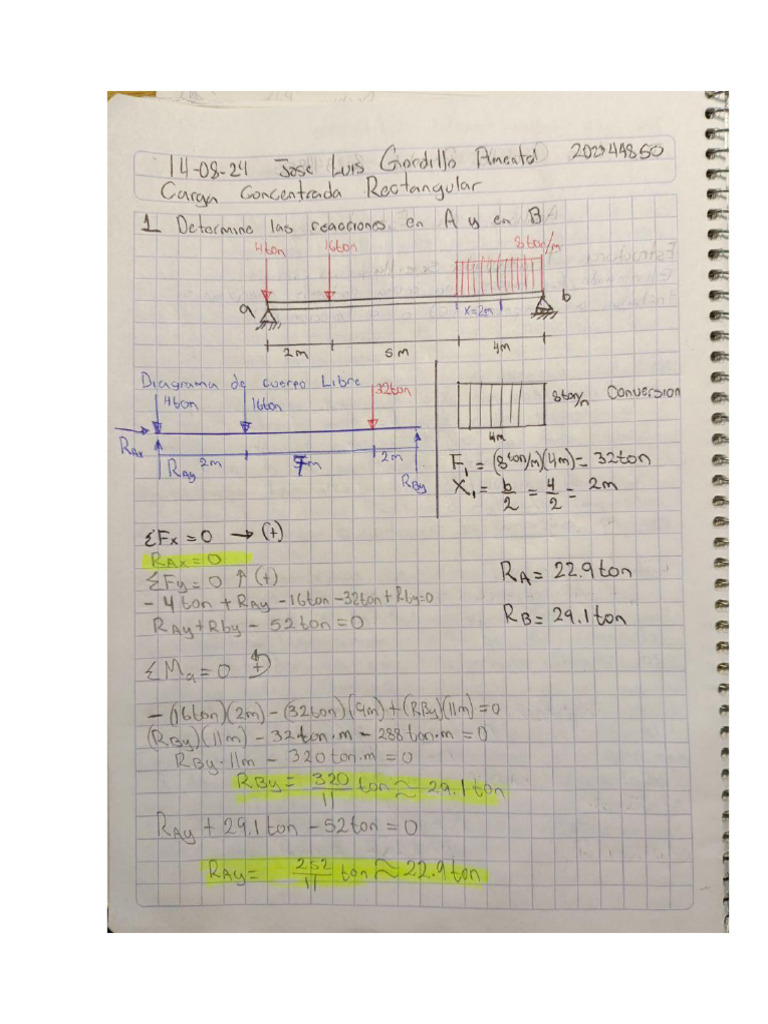 14-08-24 Jose Luis Gordillo Pimentel 202244850
Carga Concentrada Rectangular
1 Determine las reacciones en A y en B
4ton 16ton 8ton/m
a b
x=2m
2m 5m 4m
Diagrama de cuerpo Libre
4ton 16ton 32ton
RAx
RAy 2m 7m 2m RBy
8ton/m Conversion
4m
F1 = (8 ton/m)(4m) = 32ton
X1 = b/2 = 4/2 = 2m
ΣFx = 0 → (+)
RAx = 0
ΣFy = 0 ↑ (+)
- 4 ton + RAy - 16ton - 32ton + Rby = 0
RAy + Rby - 52ton = 0
ΣMa = 0 +
- (16ton)(2m) - (32ton)(9m) + (RBy)(11m) = 0
(RBy)(11m) - 32ton·m - 288ton·m = 0
RBy·11m - 320ton·m = 0
RBy = 320/11 ton ≈ 29.1 ton
RAy + 29.1ton - 52ton = 0
RAy = 252/11 ton ≈ 22.9ton
RA = 22.9ton
RB = 29.1ton